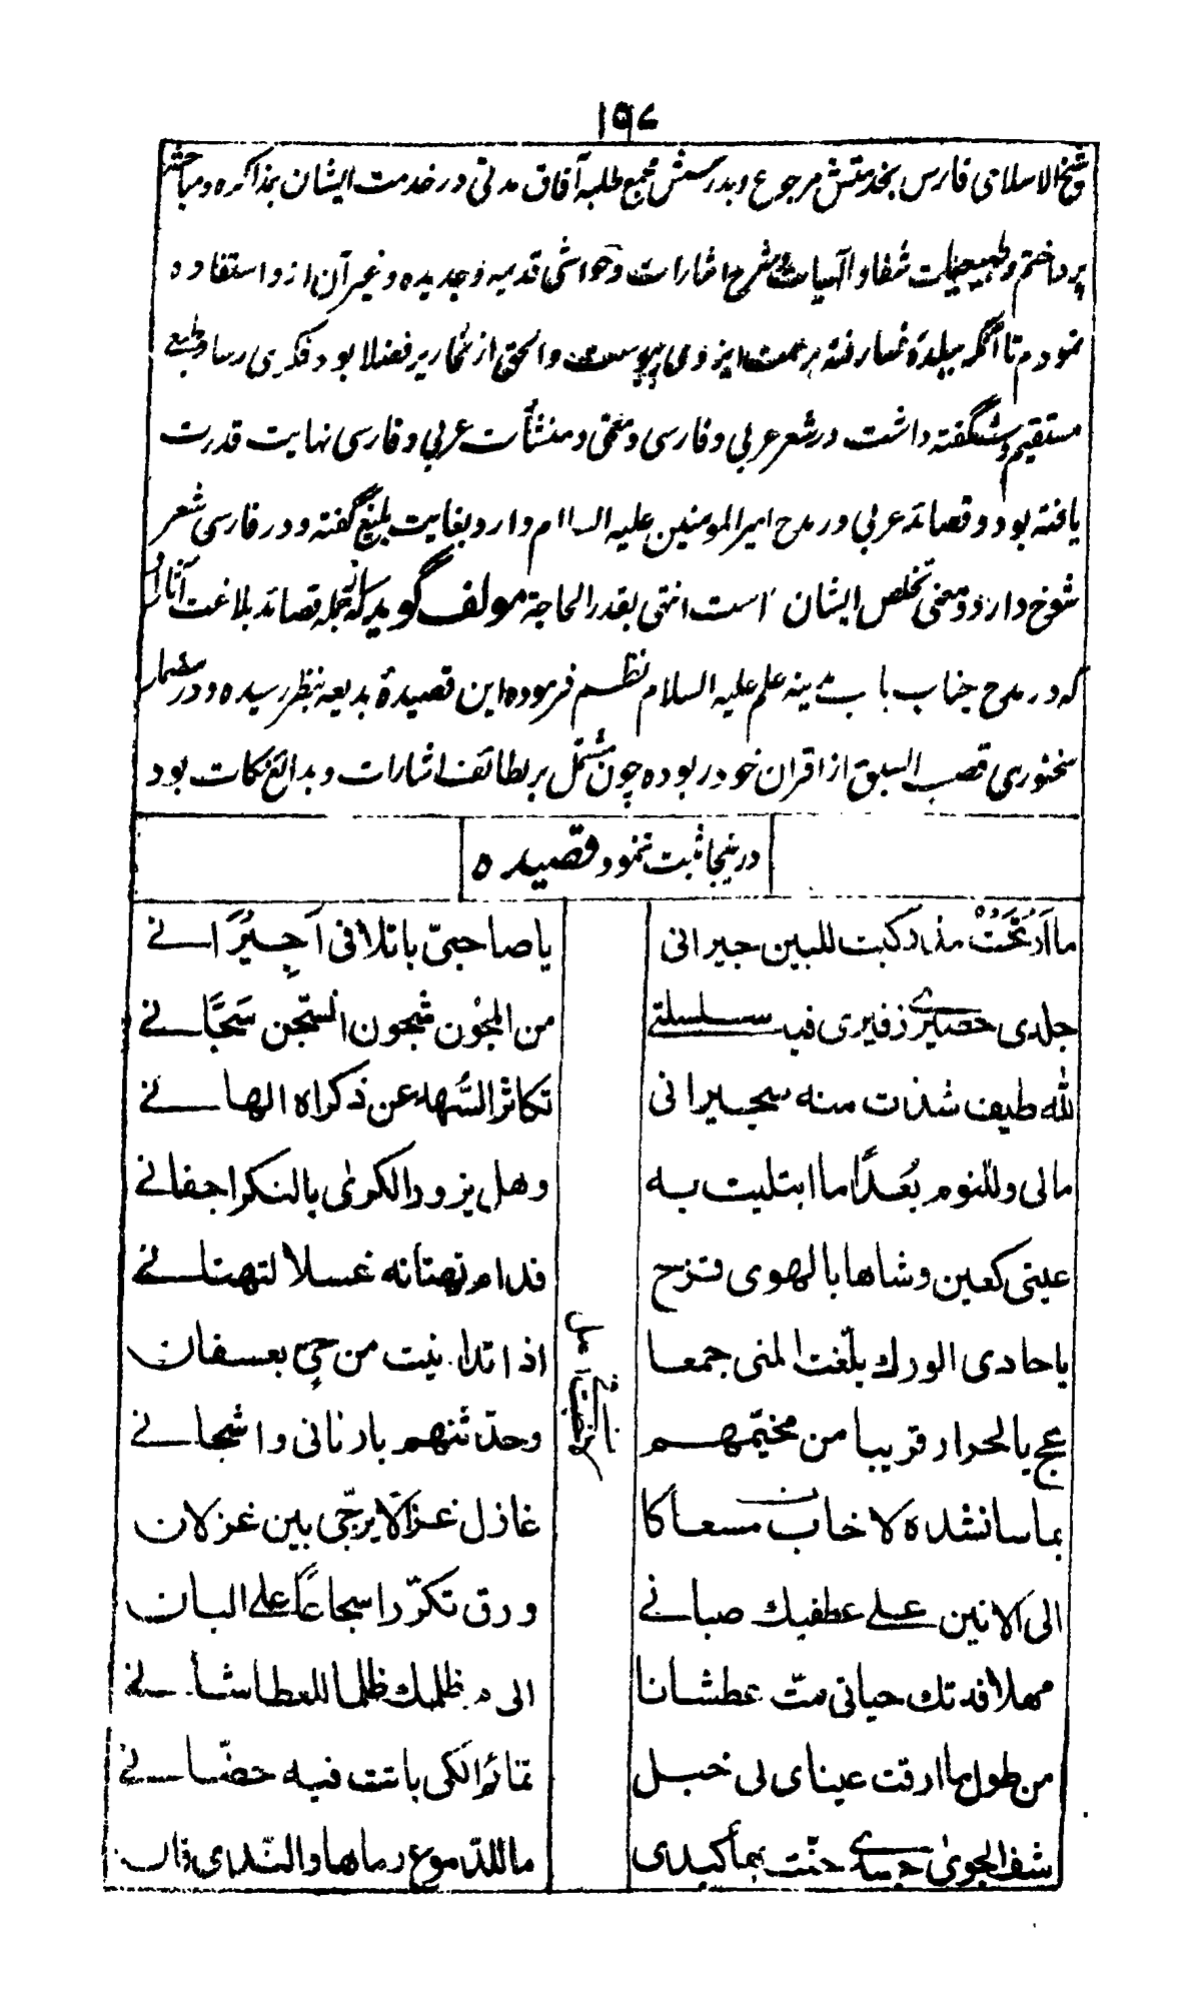 ۱۵۷
شیخ الاسلامی فارس بخدمتش مرجوع و بدرسش مجمع طلبه آفاق مدتی در خدمت ایشان بمذاکره و مباحثه
پرداختم و طبیعیات شفا و آلهیات شرح اشارات و حواشی قدیمه و جدیده و غیر آن از و استفاده
نمودم تا آنکه ببلدهٔ رفته برحمت ایزدی پیوست والحق از نحاریر فضلا بود فکری رسا و طبعی
مستقیم و شگفته داشت در شعر عربی و فارسی و معمی و منشآت عربی و فارسی نهایت قدرت
یافته بود و قصائد عربی در مدح امیرالمومنین علیه السلام دارد بغایت بلیغ گفته و در فارسی شعر
شوخ دارد و تخلص ایشان است انتهی بقدر الحاجة مولف گوید که از جمله قصائد بلاغت آثار
که در مدح جناب باب مدینه علم علیه السلام نظم فرموده این قصیدهٔ بدیعه بنظر رسیده و در مضمار
سخنوری قصب السبق از اقران خود ربوده چون مشتمل بر لطائف اشارات و بدائع نکات بود
درینجا ثبت نمود قصیده ه
ما ارتحت مذ رکبت للبین جیرانی یا صاحبیّ باتلافی اجیرانی
جلدی حصیری زفیری فیه سلسلتی من المجون شجون السجن سجّانی
لله طیف شذت منه بجیرانی تکاثر السّهد عن ذکراه الهانی
مالی وللنوم بُعدًا ما ابتلیت به وهل یزور الکری بالنکر اجفانی
عینی کعین وشاها بالهوی قزح فدام تهتانه غسلا لتهتانی
یا حادی الورک بلّغت المنی جمعا اذا تدانیت من حیّ بعسفان
عج یا لحرار قریبا من مخیّمهم وحدّثنهم بارنانی واشجانی
بما سانشده لا خاب مسعاکا غازل غزالا یرجّی بین غزلان
الی الانین علی عطفیك صبانی ورق تکرّر اسجاعًا علی البان
مهلا فدتك حیاتی متّ عطشانا الی م ظلمك ظلما للعطاشانی
من طول ما ارقت عینای لی خبل باتت فیه حضّانی
شف الجوی جسدی حنّت بما کبدی ما للدّموع رماها والنّدی